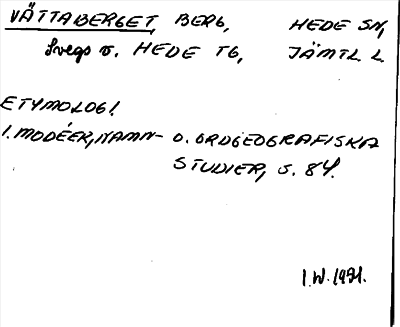 VÄTTABERGET, BERG, HEDE SN,
Svegs o. HEDE TG, JÄMTL. L.
ETYMOLOGI.
I. MODÉER, NAMN- O. ORDGEOGRAFISKA
STUDIER, S. 84.
I.W. 1971.